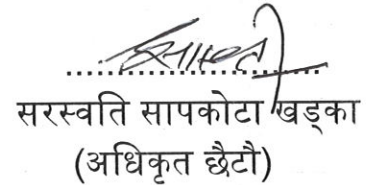 सरस्वति सापकोटा खड्का
(अधिकृत छैटौ)